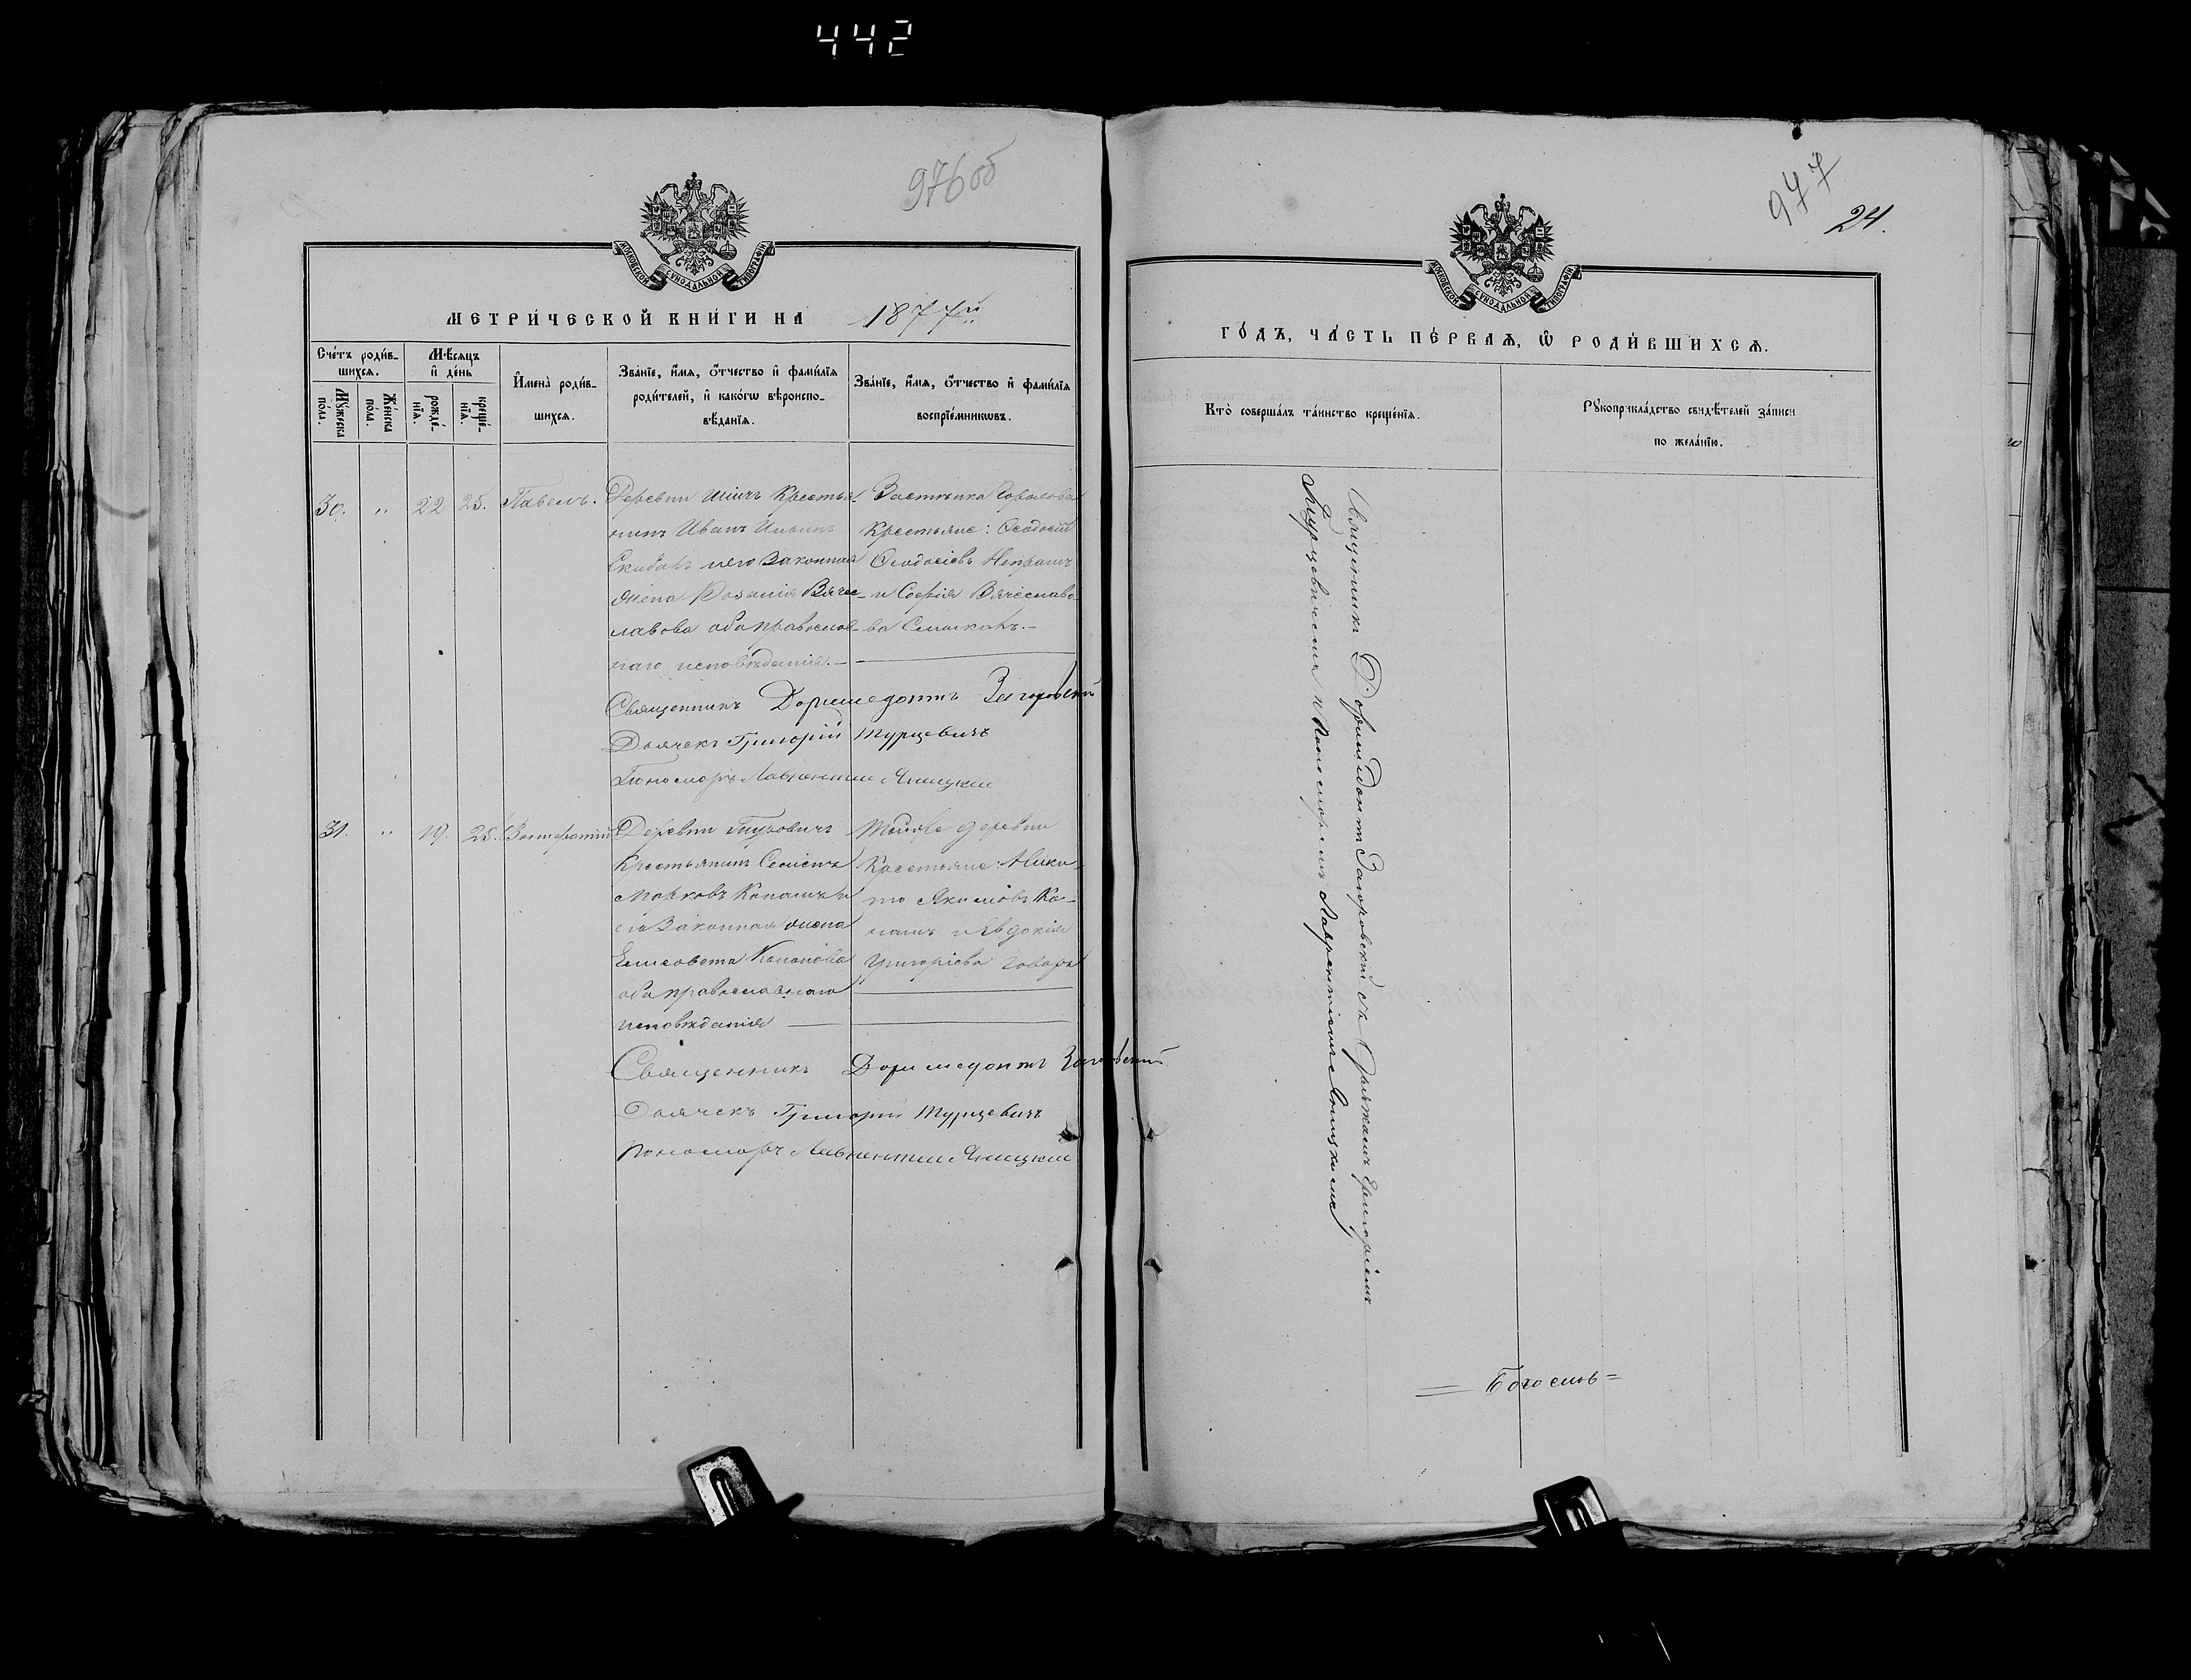 442
976об
947
24.
МОСКОВСКОЙ СУНОДАЛЬНОЙ ТИПОГРАФІИ
МЕТРИ́ЧЕСКОЙ КНИ́ГИ НА 1877й
Сче́тъ роди́в-
шихсѧ.
Мꙋ́жеска
по́ла.
Же́нска
по́ла.
Мѣ́сяцъ
и҆ де́нь
рожде́-
нїѧ.
креще́-
нїѧ.
И҆мена̀ роди́в-
шихсѧ.
Зва́нїе, и҆́мѧ, ѻ҆́тчество и҆ фами́лїѧ
роди́телей, и҆ како́гѡ вѣроиспо-
вѣ́данїѧ.
Зва́нїе, и҆́мѧ, ѻ҆́тчество и҆ фами́лїѧ
воспрїе́мникѡвъ.
30. " 22 25. Павелъ.
Деревни Крестья-
нинъ Иванъ Ильинъ
Скибаръ и его Законная
жена Розалія Вяче-
славова оба православ-
наго исповѣданія.—
Застѣнка
Крестьяне: Ѳеодосій
Ѳеодосіевъ
и Софія Вячеславо-
ва —
Священникъ Доримедонтъ Загоровскій
Дьячекъ Григорій Турцевичъ
Пономаръ Лаврентій Яницкій
31. " 19. 25.
Деревни
Крестьянинъ Семіонъ
Марковъ Копачъ и
его Законная жена
Елисавета
оба православнаго
исповѣданія —
Тойже деревни
Крестьяне: Ники-
та Якимовъ Ко-
и Евдокія
Григоріева
Священникъ Доримедонтъ Загоровскій
Дьячекъ Григорій Турцевичъ
Пономаръ Лаврентій Яницкій
МОСКОВСКОЙ СУНОДАЛЬНОЙ ТИПОГРАФІИ
ГО́ДЪ, ЧА́СТЬ ПЕ́РВАѦ, Ѽ РОДИ́ВШИХСѦ.
Кто̀ соверша́лъ та́инство креще́нїѧ.
Рꙋкоприкла́дство свидѣ́телей за́писи
по жела́нїю.
Священникъ Доримедонтъ Загоровскій съ Григоріемъ
Турцевичемъ и Пономаремъ Лаврентіемъ Яницкимъ
= Богослов=